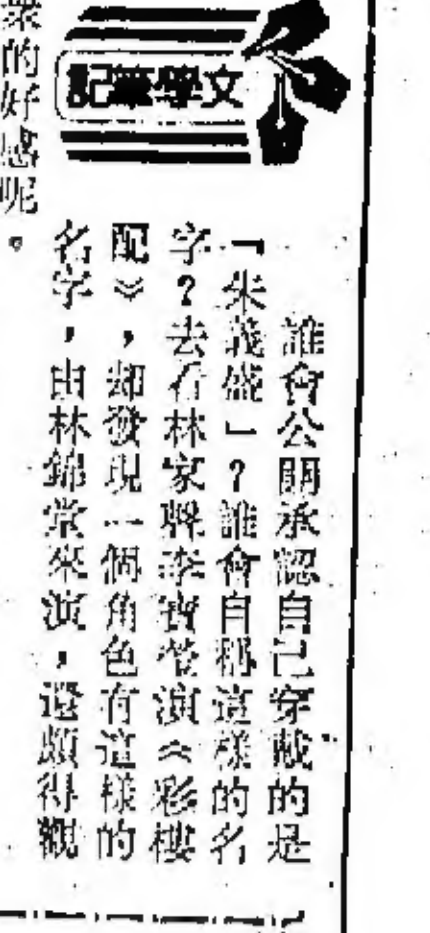 文學筆記
誰會公開承認自己穿戴的是
「朱義盛」?誰會自稱這樣的名
字?去看林家聲李寶瑩演《彩樓
配》,却發現一個角色有這樣的
名字,由林錦堂來演,還頗得觀
眾的好感呢。